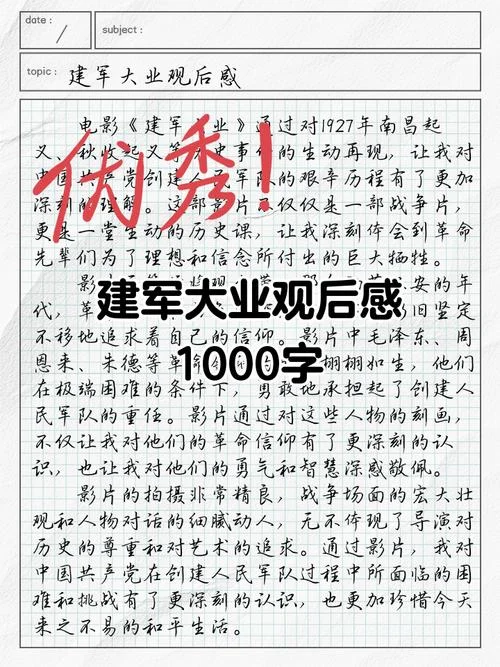 date :
subject :
topic : 建军大业观后感
电影《建军 业》通过对1927年南昌起
义、秋收起义等 史事 的生动再现，让我对
中国共产党创建 民军队的艰辛历程有了更加
深刻的理解。这部影片不仅仅是一部战争片，
更是一堂生动的历史课，让我深刻体会到革命
先辈们为了理想和信念所付出的巨大牺牲。
优秀!
影 安的年
代，革 旧坚定
不移地追求着自己的信仰。影片中毛泽东、周
恩来、朱德等革命 栩栩如生，他们
在极端困难的条件下，勇敢地承担起了创建人
民军队的重任。影片通过对这些人物的刻画，
不仅让我对他们的革命信仰有了更深刻的认
识，也让我对他们的勇气和智慧深感敬佩。
建军大业观后感
1000字
影片的拍摄非常精良，战争场面的宏大壮
观和人物对话的细腻动人，无不体现了导演对
历史的尊重和对艺术的追求。通过影片，我对
中国共产党在创建人民军队过程中所面临的困
难和挑战有了更深刻的认识，也更加珍惜今天
来之不易的和平生活。